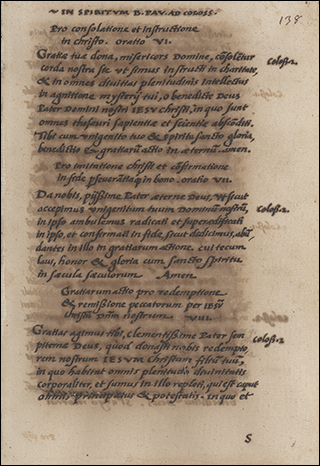 IN SPIRITVM B. PAV. AD COLOSS.
138
Pro consolatione et instructione
in christo. oratio VI.
Gratiæ tuæ dona, misericors Domine, cõsolẽtur
Coloß.2.
corda nostra sic vt simus instructi in charitate,
& in omnes diuitias plenitudinis intellectus
in agnitione mysterij tui, o benedicte Deus
Pater Domini nostri IESV christi, in quo sunt
omnes thesauri sapientiæ et scientiæ absconditi.
Tibi cum vnigenito tuo & spiritu sancto gloria,
benedictio & gratiarũ actio in æternũ. amen.
Pro imitatione christi et cõfirmatione
in fide pseuerãtiaq in bono. oratio VII.
Da nobis, piissime Pater æterne Deus, vt sicut
accepimus vnigenitum tuum Dominum nostrũ,
Coloß.2.
in ipso ambulemus radicati et superædificati
in ipso, et confirmati in fide, sicut didicimus, abũ
dantes in illo in gratiarum actione. cui tecum
laus, honor & gloria cum sancto spiritu
in sæcula sæculorum Amen.
Gratiarum actio pro redemptione
& remissione peccatorum per IESV
christũ Dñm nostrum. VIII.
Gratias agimus tibi, clementissime Pater sem
piterne Deus, quod donasti nobis redempto,
Coloß.2.
rem nostrum IESVM Christum filiũ tuũ,
in quo habitat omnis plenitudo diuinitatis
corporaliter, et sumus in illo repleti, qui est caput
omnis principatus & potestatis. in quo et
S